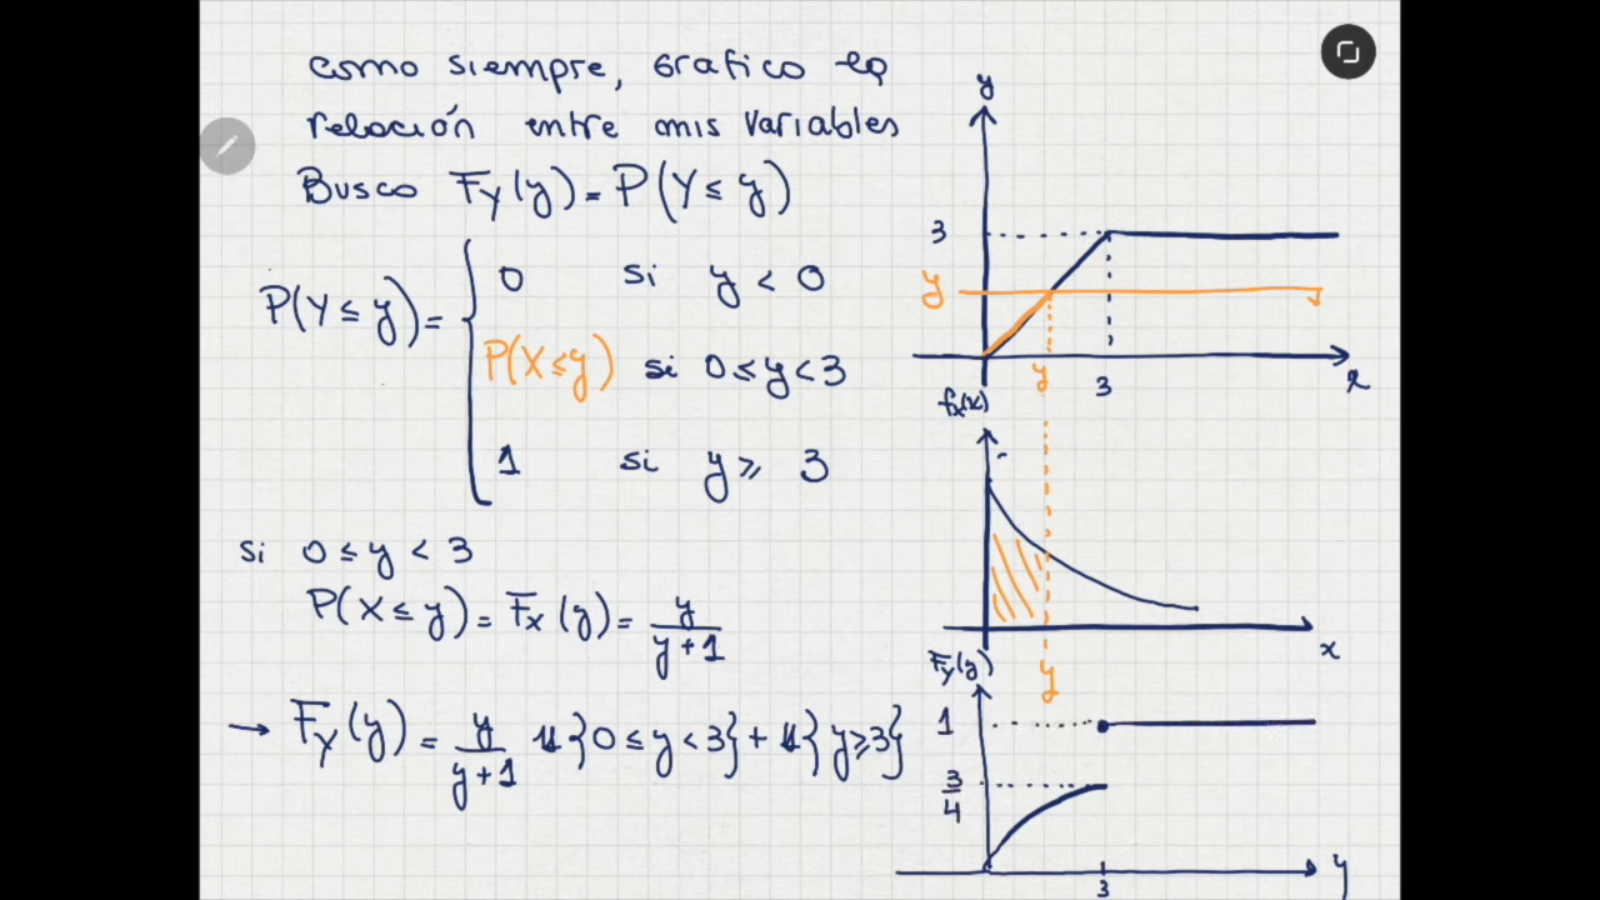 como siempre, grafico la
relación entre mis variables
Busco F_Y(y) = P(Y ≤ y)
P(Y ≤ y) = {
0 si y < 0
P(X ≤ y) si 0 ≤ y < 3
1 si y ≥ 3
si 0 ≤ y < 3
P(X ≤ y) = F_X(y) = y/(y+1)
→ F_Y(y) = y/(y+1) 1{0 ≤ y < 3} + 1{y ≥ 3}
y
3
y
y
3
x
f_X(x)
x
y
F_Y(y)
1
3/4
3
y